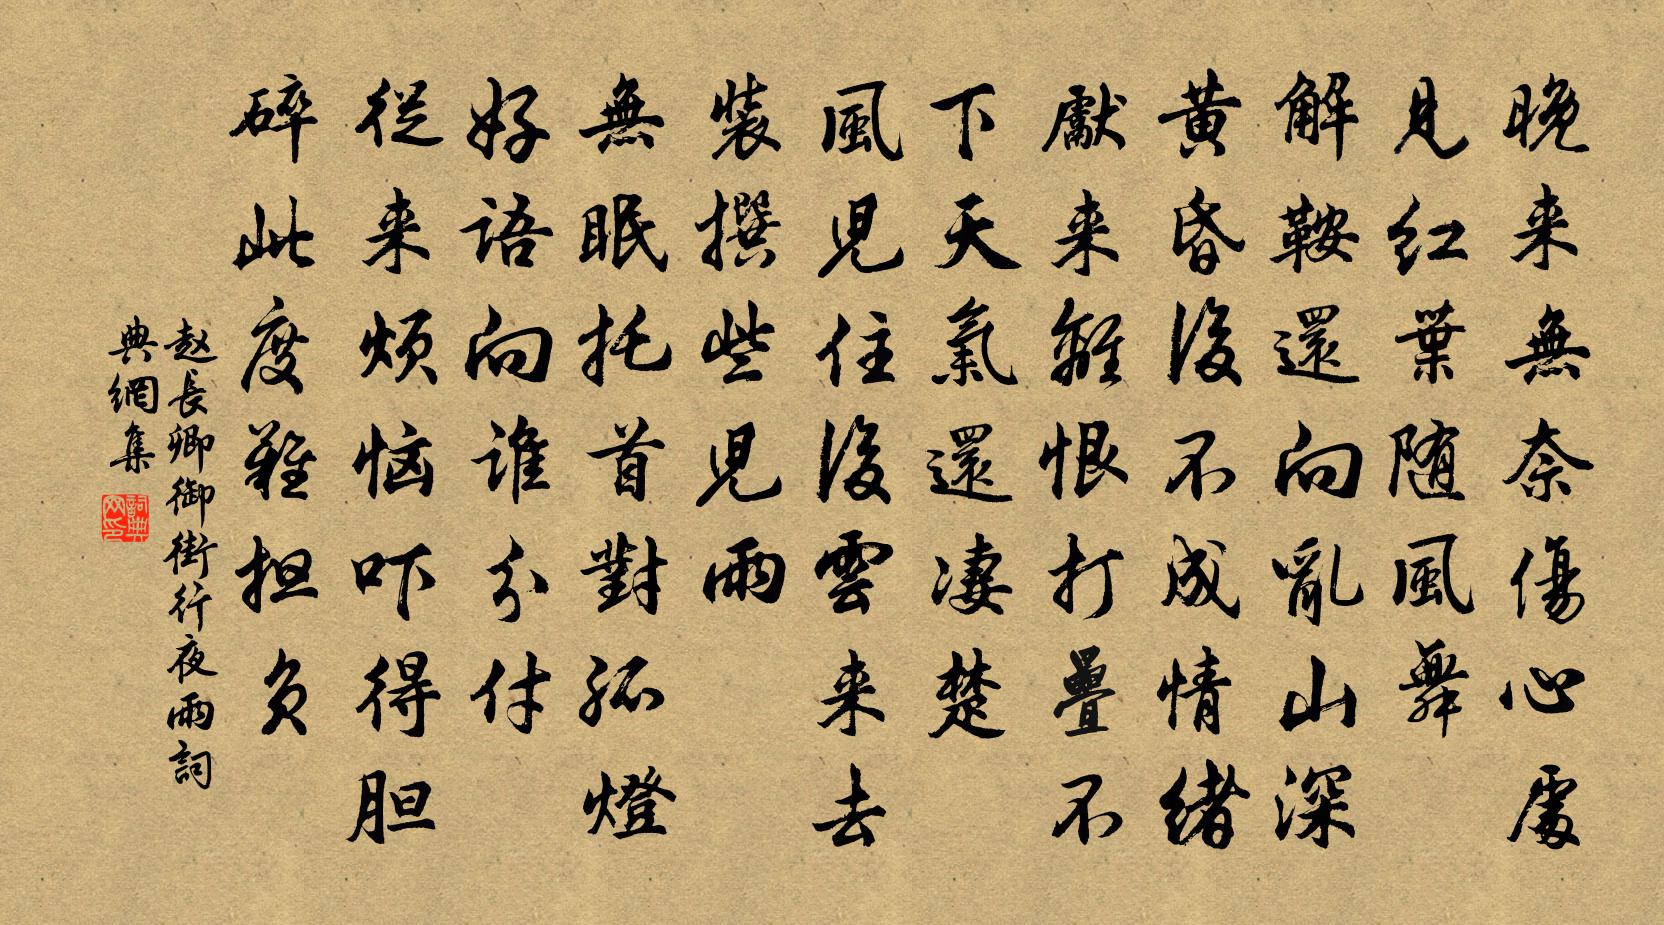 晚来無奈傷心處
見紅葉随風舞
解鞍還向亂山深
黄昏後不成情緒
獻来離恨打疊不
下天氣還凄楚
風兒住後雲来去
裝撰些兒雨
無眠托首對孤燈
好語向誰分付
從来烦恼吓得胆
碎此度難担负
赵長卿御街行夜雨詞
典網集
詞典网印